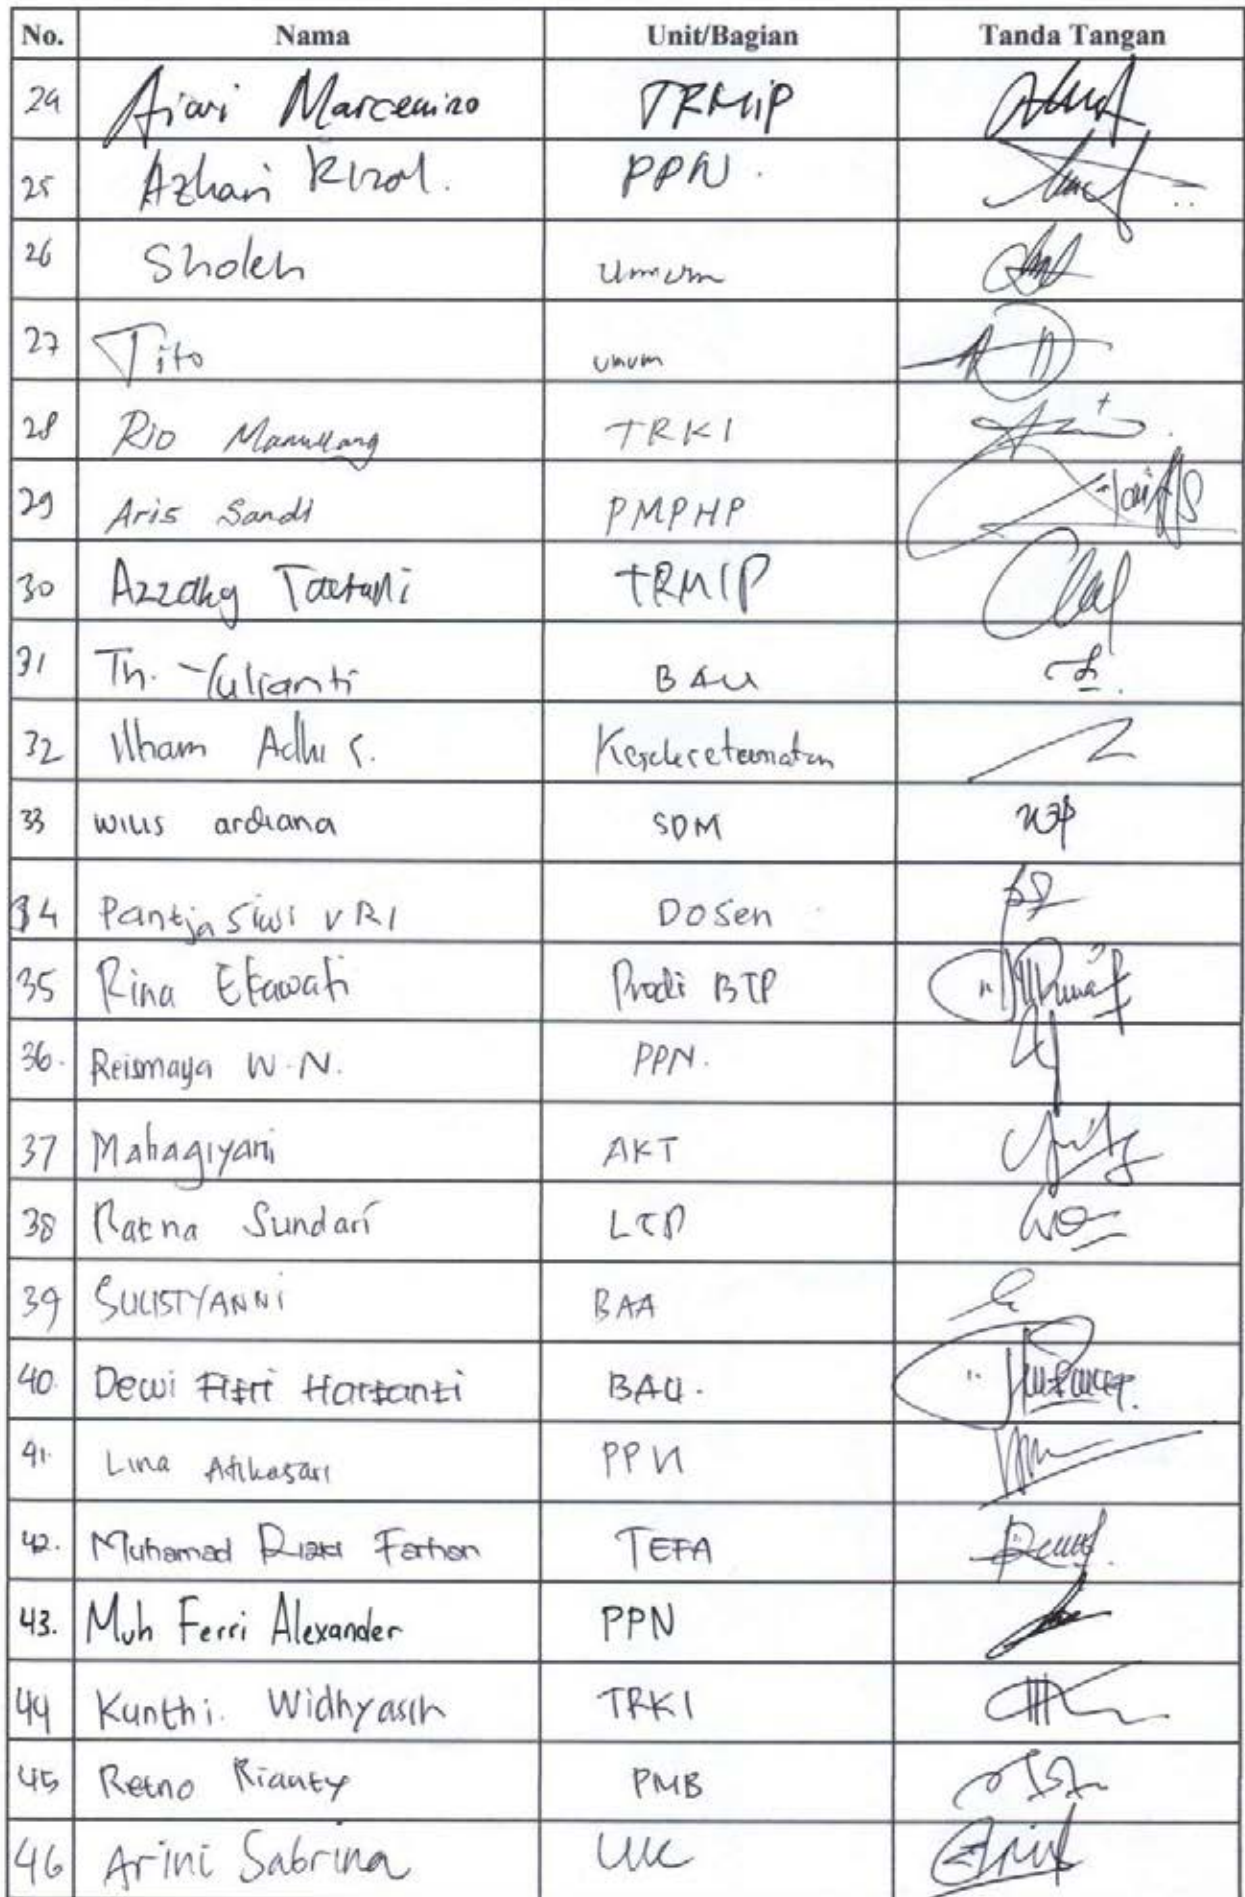 No. Nama Unit/Bagian Tanda Tangan
24 Ajari Marcemino TRMIP
25 Azhari Rizal. PPN.
26 Sholeh Umum
27 Tito umum
28 Rio Manullang TRKI
29 Aris Sandi PMPHP
30 Azzaky TRMIP
31 Th. Yulianti BAU
32 Ilham Adhi S.
33 wilis ardiana SDM
34 Pantja Siwi VRI Dosen
35 Rina Ekawati Prodi BTP
36. Reismaya W.N. PPN.
37 Mahagiyani AKT
38 Ratna Sundari LTP
39 SULISTYANNI BAA
40. Dewi Fitri Hartanti BAU.
41. Lina Atikasari PPN
42. Muhamad Rizki Farhan TEFA
43. Muh Ferri Alexander PPN
44 Kunthi. Widhyasih TRKI
45 Retno Rianty PMB
46 Arini Sabrina UK